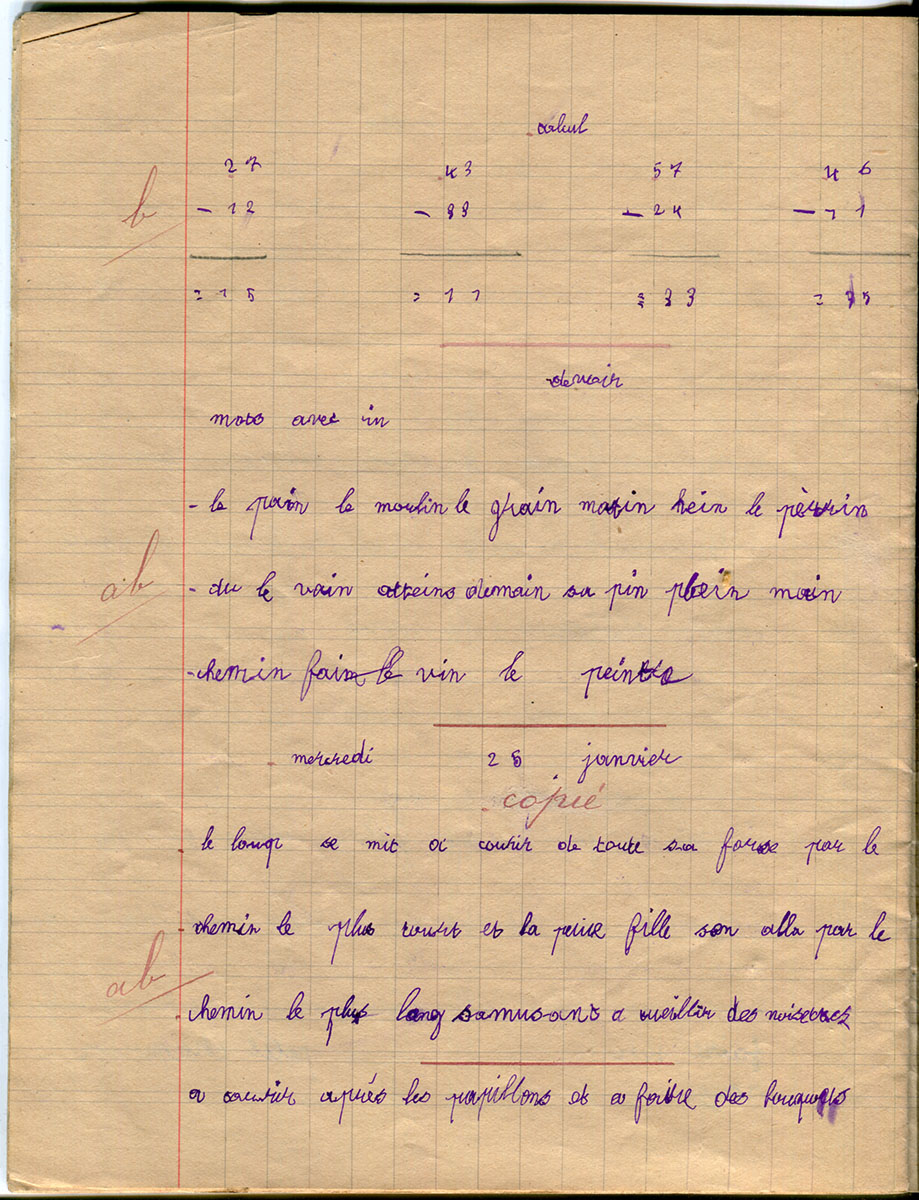 calcul
27 43 57 46
b - 12 - 33 - 24 - 1
= 15 = 11 = 33 = 35
devoir
mots avec in
- le pain le moulin le grain matin hein le
ab - du le vain atteins demain sa pin plein main
- chemin vin le
mercredi 25 janvier
copié
le loup se mit a courir de toute sa forse par le
chemin le plus court et la petite fille son alla par le
ab chemin le plus long samusant a cueillir des noisettes
a courir aprés les papillons et a faire des bouquets